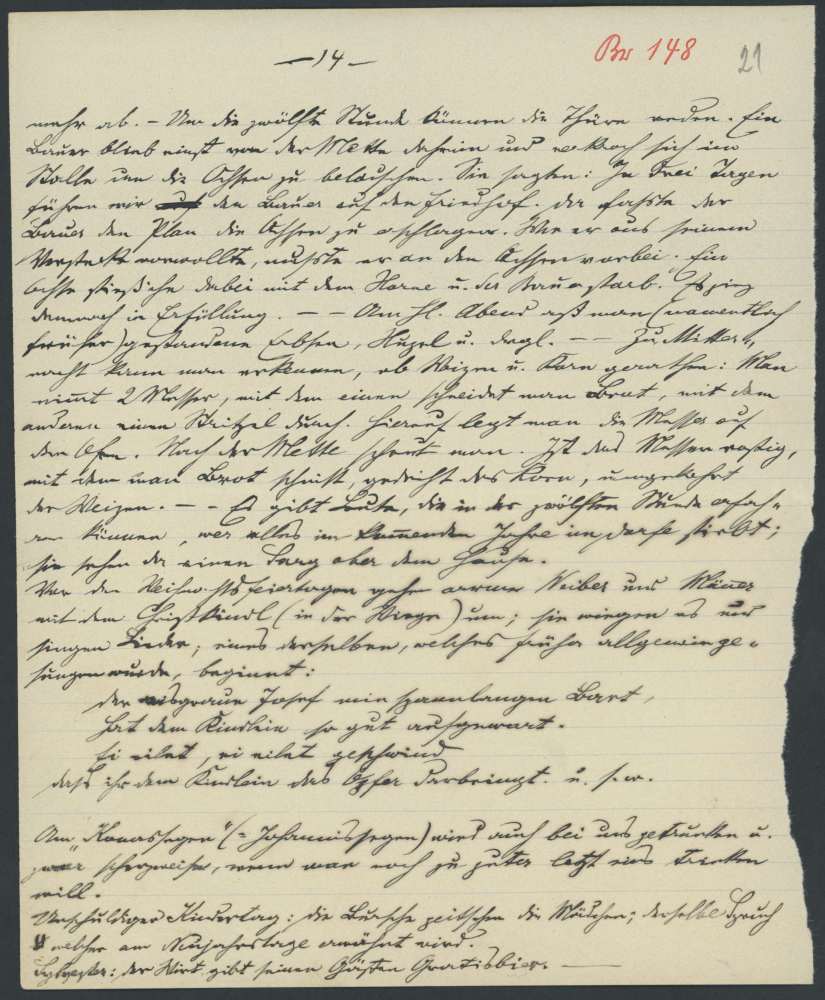 — 14 —
Br 148
21
mehr ab. – Um die zwölfte Stunde können die Thiere reden. Ein
Bauer blieb einst von der Mette daheim und verkroch sich im
Stalle um die Ochsen zu belauschen. Sie sagten: In drei Tagen
führen wir den Bauer auf den Friedhof. Da faßte der
Bauer den Plan die Ochsen zu erschlagen. Wie er aus seinem
Versteck vorwollte, mußte er an den Ochsen vorbei. Ein
Ochse stieß ihn dabei mit dem Horne u. der Bauer starb. Es ging
demnach in Erfüllung. — – Am hl. Abend aß man (namentlich
früher) gestandene Erbsen, Huzel u. drgl. — – Zu Mitter„
nacht kann man erkennen, ob Weizen u. Korn gerathen: Man
nimt 2 Messer, mit dem einen schneidet man Brot, mit dem
anderen einen Stritzel durch. Hierauf legt man die Messer auf
den Ofen. Nach der Mette schaut man. Ist das Messer rostig,
mit dem man Brot schnitt, gedeiht das Korn, umgekehrt
der Weizen. — – Es gibt Leute, die in der zwölften Stunde erfah„
ren können, wer alles im kommenden Jahre im Dorfe stirbt;
sie sehen da einen Sarg ober dem Hause.
Vor den Weihnachtsfeiertagen gehen arme Weiber und Männer
mit dem Christkindl (in der Wiege) um; sie wiegen es und
singen Lieder; eines derselben, welches früher allgemein ge„
sungen wurde, beginnt:
Der eisgraue Josef mit spannlangen Bart,
hat dem Kindlein so gut aufgewart.
Ei eilet, ei eilet geschwind
daß ihr dem Kindlein das Opfer darbringt. u. s. w.
Am „Kannassegen“ (= Johannissegen) wird auch bei uns getrunken u.
zwar scherzweise, wenn man noch zu guter letzt eins trinken
will.
Unschuldiger Kindertag: die Bursche peitschen die Mädchen; derselbe Spruch
welcher am Neujahrstage erwähnt wird.
Sylvester: der Wirt gibt seinen Gästen Gratisbier. —